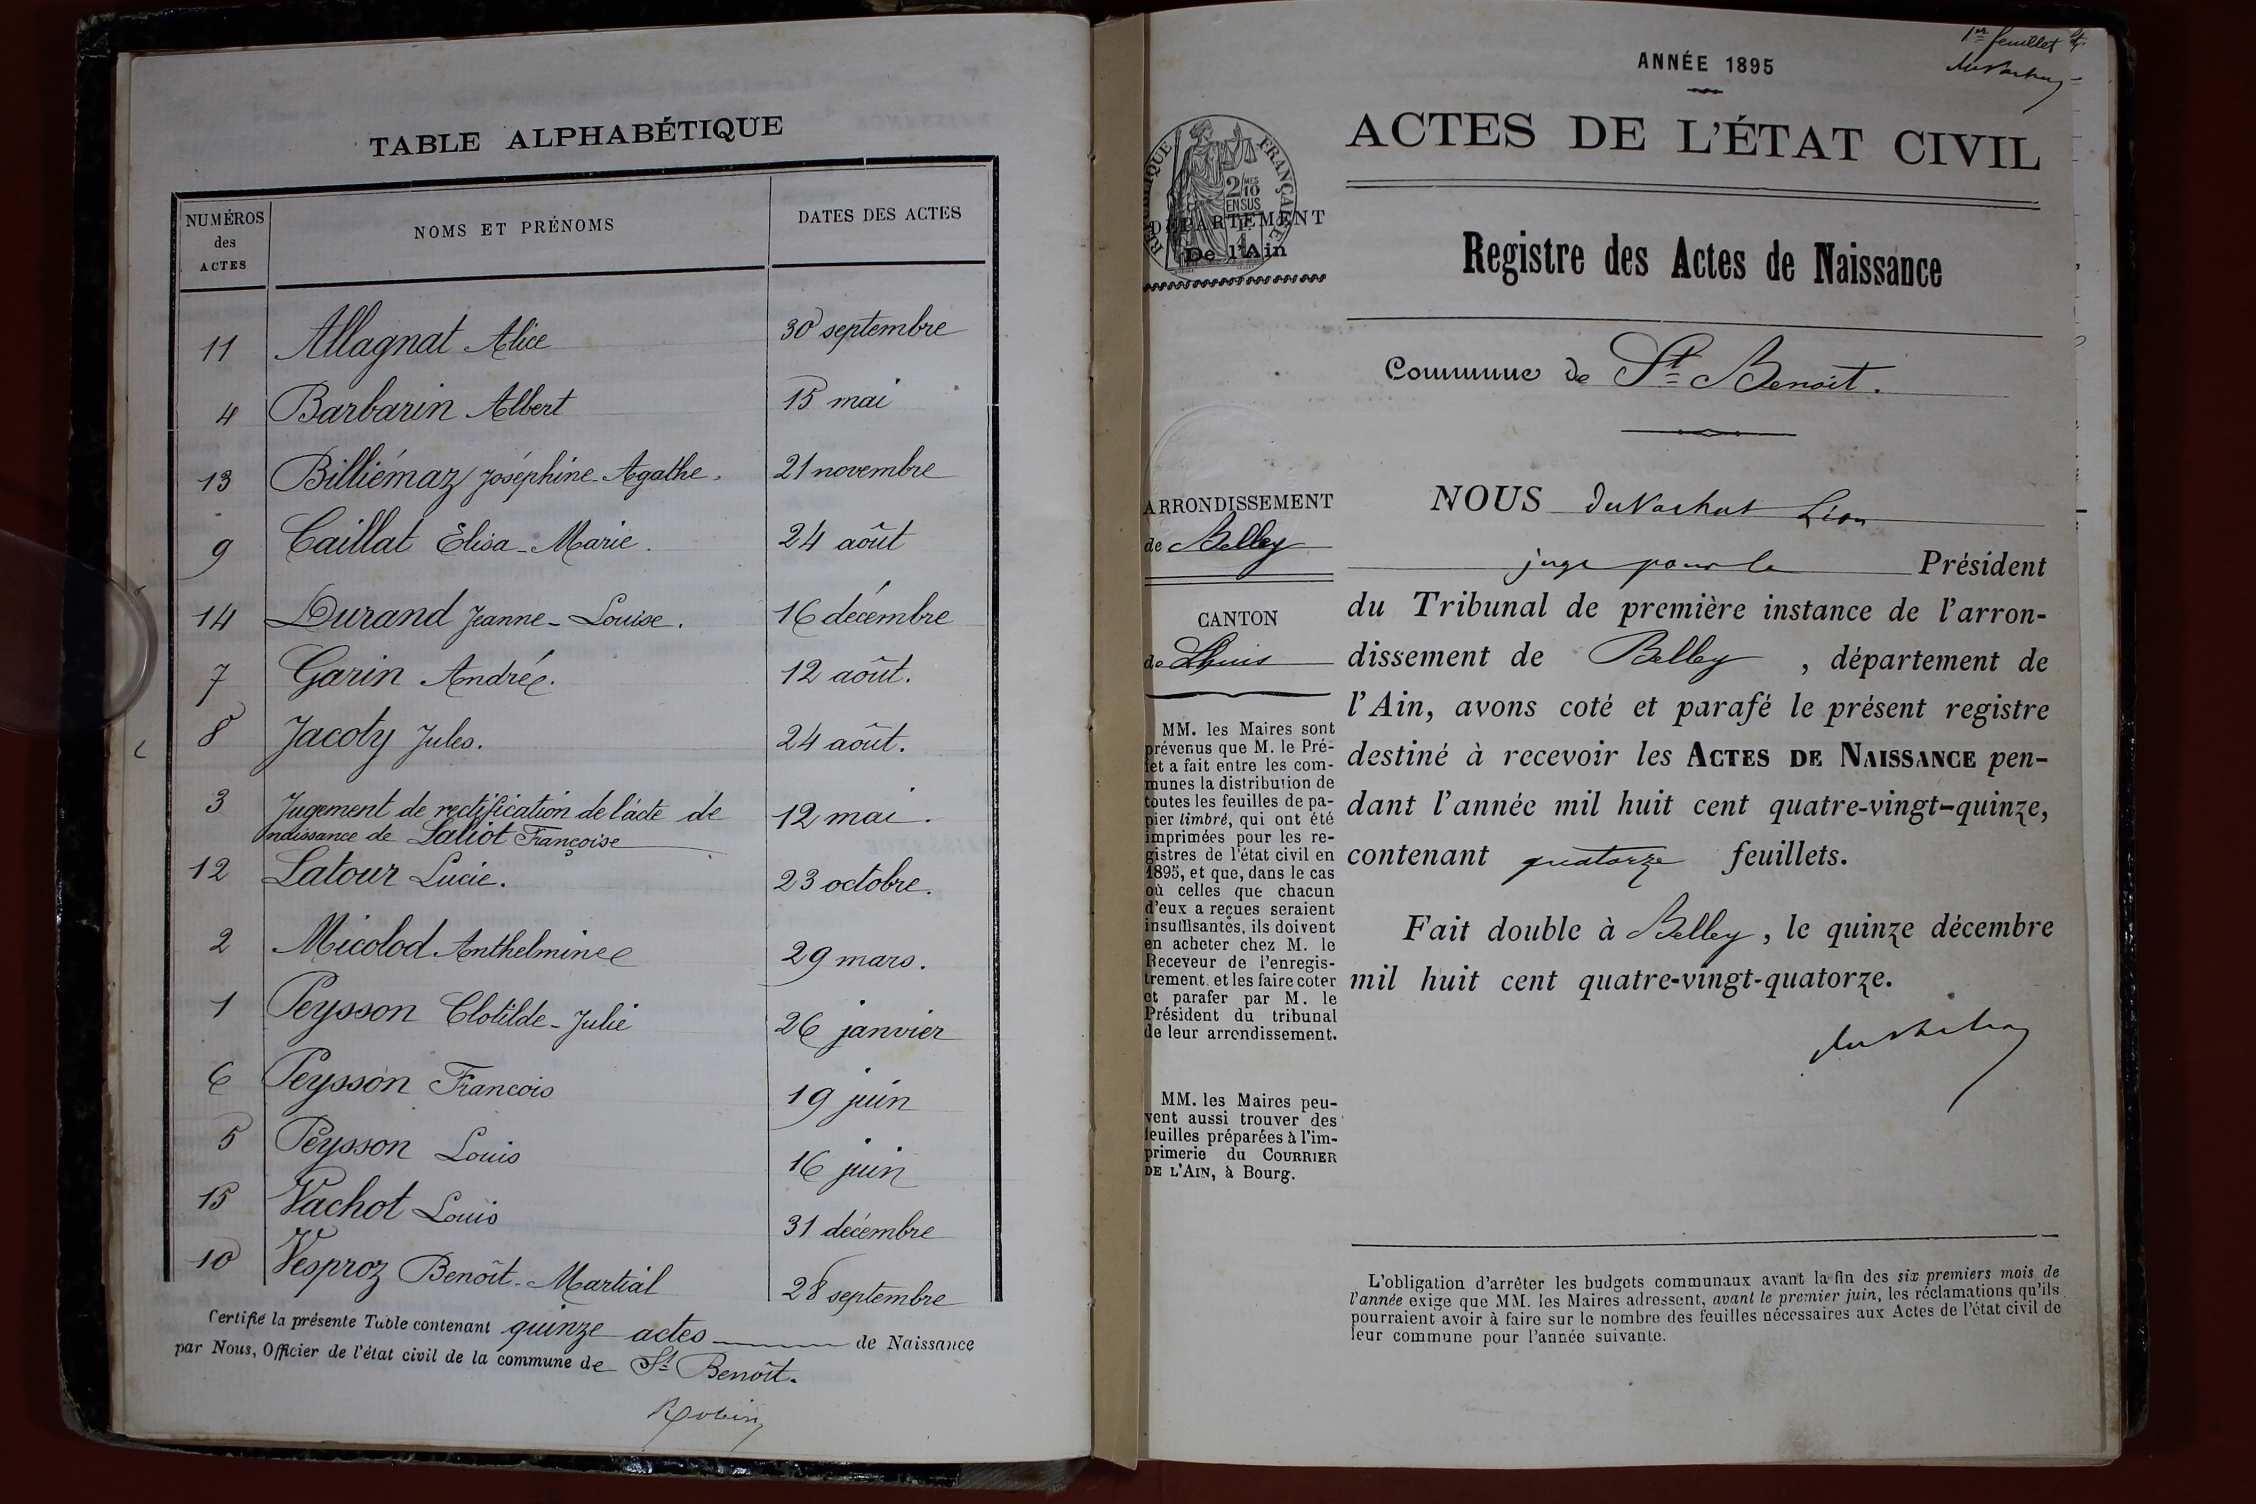 TABLE ALPHABÉTIQUE
NUMÉROS des ACTES NOMS ET PRÉNOMS DATES DES ACTES
11 Allagnat Alice 30 septembre
4 Barbarin Albert 15 mai
13 Billiémaz Joséphine-Agathe. 21 novembre
9 Caillat Elisa-Marie. 24 août
14 Durand Jeanne-Louise. 16 décembre
7 Garin Andrée. 12 août.
8 Jacoty Jules. 24 août.
3 Jugement de rectification de l'acte de 12 mai.
naissance de Laliot Françoise
12 Latour Lucie. 23 octobre.
2 Micolod Anthelmine 29 mars.
1 Peysson Clotilde-Julie 26 janvier
6 Peysson Francois 19 juin
5 Peysson Louis 16 juin
15 Vachot Louis 31 décembre
10 Vesproz Benoît-Martial 28 septembre
Certifié la présente Table contenant quinze actes de Naissance
par Nous, Officier de l'état civil de la commune de St Benoît.
Robin
1er feuillet
ANNÉE 1895
ACTES DE L'ÉTAT CIVIL
RÉPUBLIQUE FRANÇAISE
2/10MES
EN SUS
DÉPARTEMENT
De l'Ain
Registre des Actes de Naissance
Commune de St Benoit.
ARRONDISSEMENT
de Belley
CANTON
de Lhuis
MM. les Maires sont
prévenus que M. le Pré-
fet a fait entre les com-
munes la distribution de
toutes les feuilles de pa-
pier timbré, qui ont été
imprimées pour les re-
gistres de l'état civil en
1895, et que, dans le cas
où celles que chacun
d'eux a reçues seraient
insuffisantes, ils doivent
en acheter chez M. le
Receveur de l'enregis-
trement. et les faire coter
et parafer par M. le
Président du tribunal
de leur arrondissement.
MM. les Maires peu-
vent aussi trouver des
feuilles préparées à l'im-
primerie du COURRIER
DE L'AIN, à Bourg.
NOUS duVachat Léon
juge pour le Président
du Tribunal de première instance de l'arron-
dissement de Belley, département de
l'Ain, avons coté et parafé le présent registre
destiné à recevoir les ACTES DE NAISSANCE pen-
dant l'année mil huit cent quatre-vingt-quinze,
contenant quatorze feuillets.
Fait double à Belley, le quinze décembre
mil huit cent quatre-vingt-quatorze.
L'obligation d'arrêter les budgets communaux avant la fin des six premiers mois de
l'année exige que MM. les Maires adressent, avant le premier juin, les réclamations qu'ils
pourraient avoir à faire sur le nombre des feuilles nécessaires aux Actes de l'état civil de
leur commune pour l'année suivante.